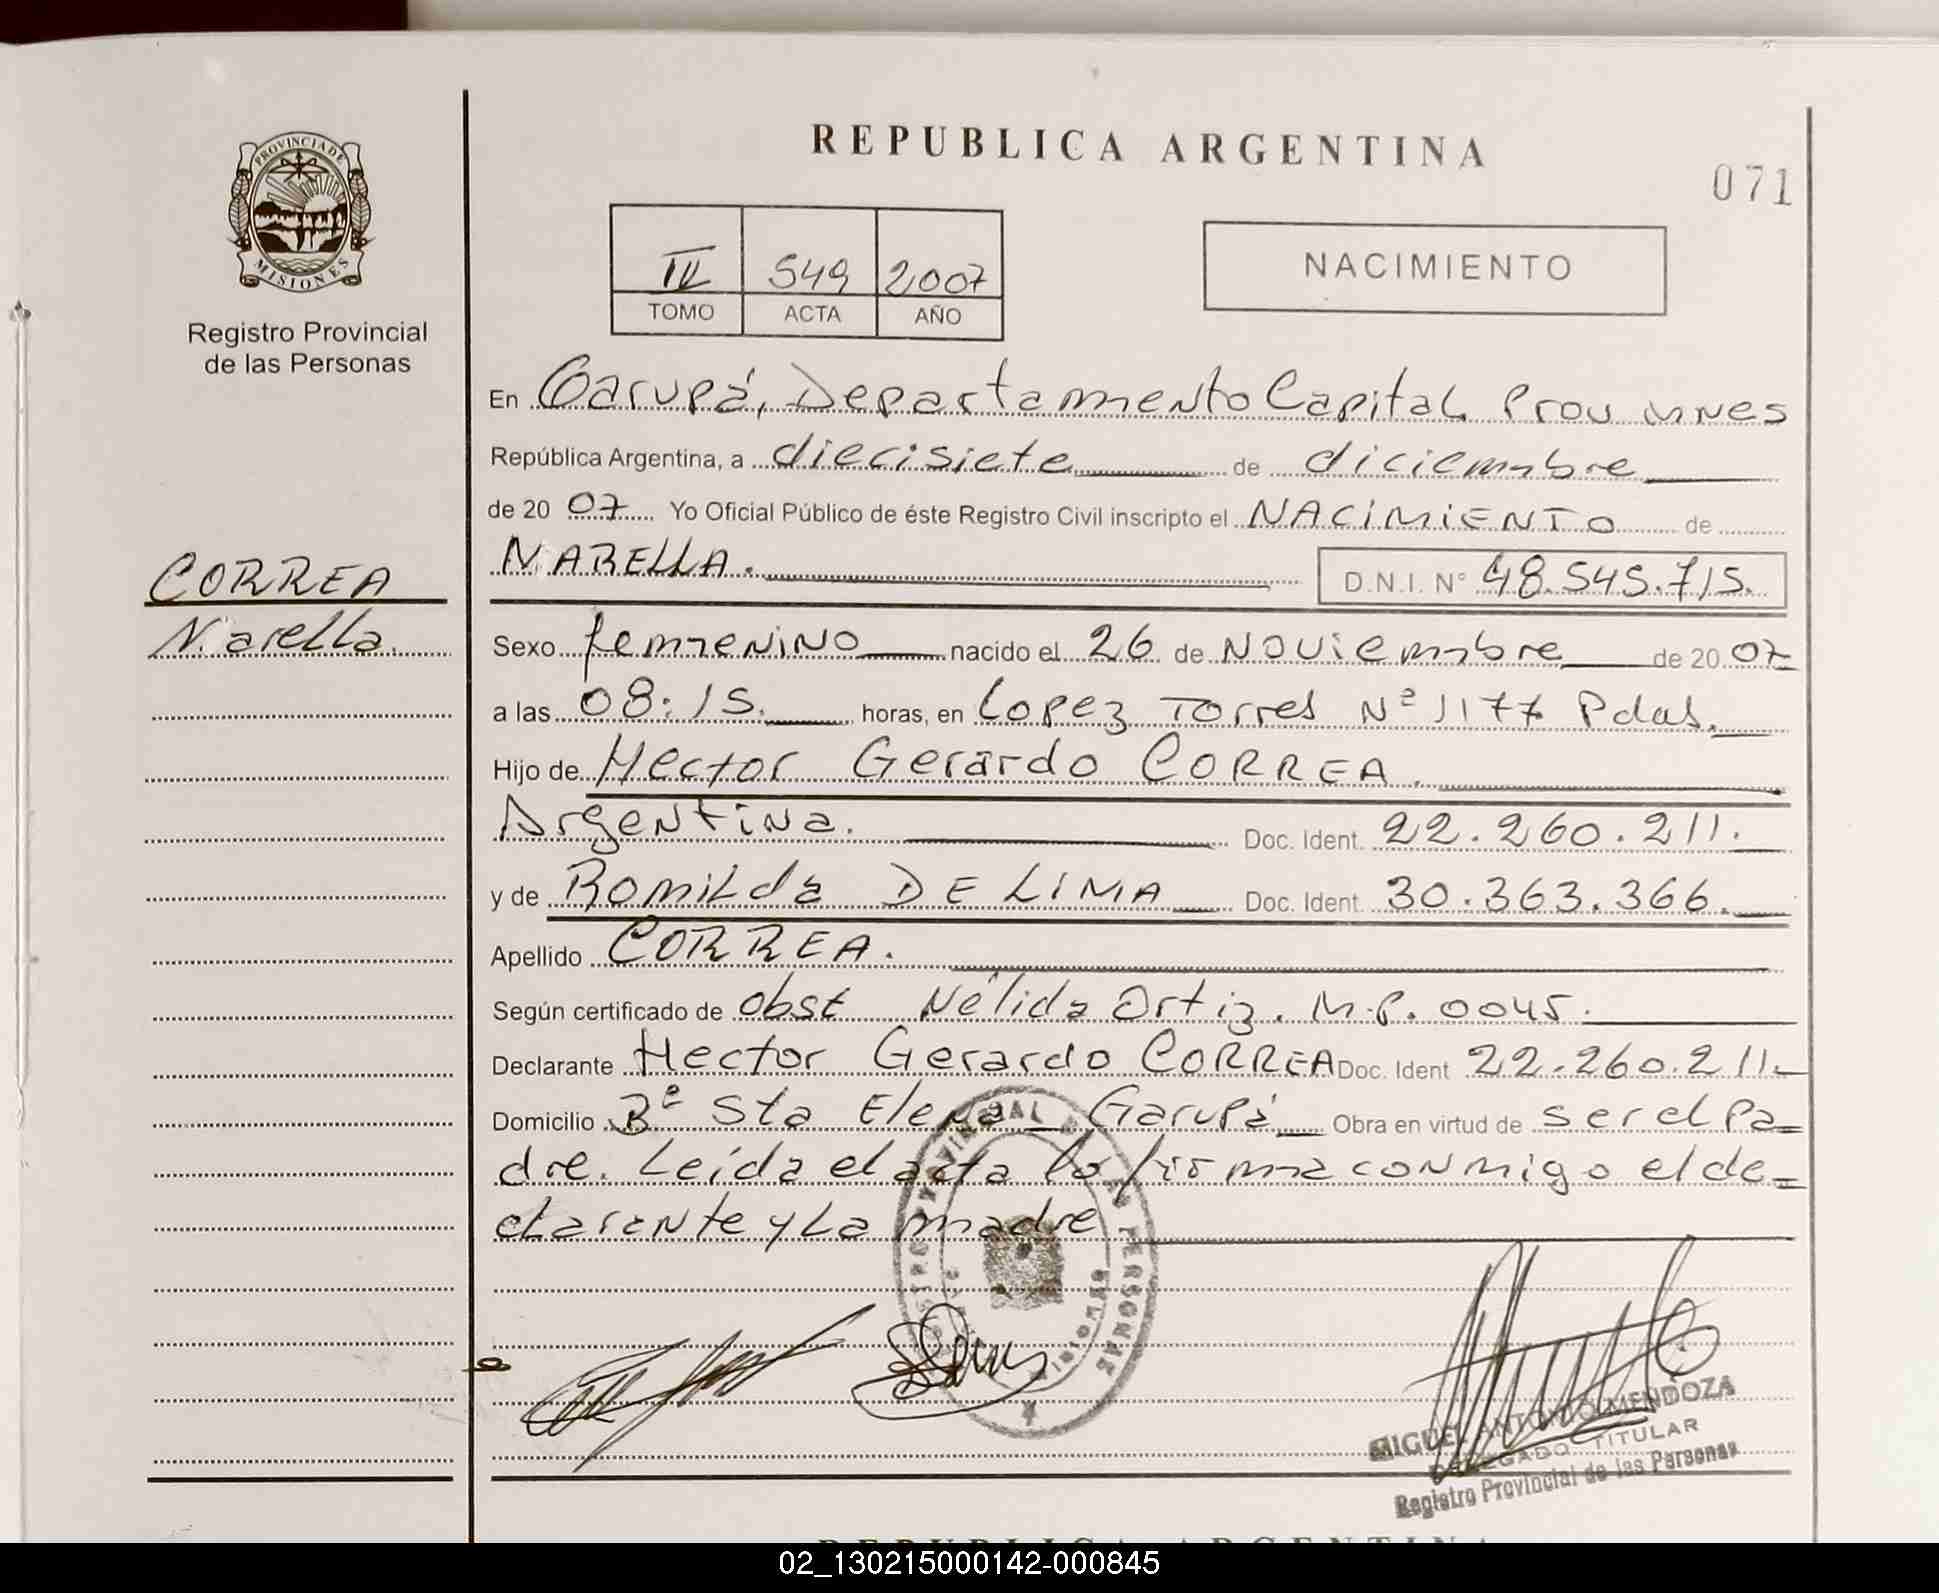 REPUBLICA ARGENTINA
071
PROVINCIA DE
MISIONES
Registro Provincial
de las Personas
549 2007
TOMO ACTA AÑO
NACIMIENTO
En Garupá, Departamento Capital Prov mnes
República Argentina, a diecisiete de diciembre
de 2007 Yo Oficial Público de éste Registro Civil inscripto el NACIMIENTO de
NARELLA. D.N.I. N° 48.545.715.
CORREA
Narella.
Sexo femenino nacido el 26 de Noviembre de 2007
a las 08:15. horas, en Lopez Torres Nº 1177 Pdas.
Hijo de Hector Gerardo CORREA.
Argentina. Doc. Ident. 22.260.211.
y de Romilda DE LIMA Doc. Ident. 30.363.366.
Apellido CORREA.
Según certificado de obst Nélida Ortiz. M.P. 0045.
Declarante Hector Gerardo CORREA Doc. Ident 22.260.211.
Domicilio Bº Sta Elena Garupá Obra en virtud de ser el pa=
dre. Leida el acta la firma conmigo el de=
clarante y la madre
MIGUEL ANTONIO MENDOZA
DELEGADO TITULAR
Registro Provincial de las Personas
REPUBLICA ARGENTINA
02_130215000142-000845